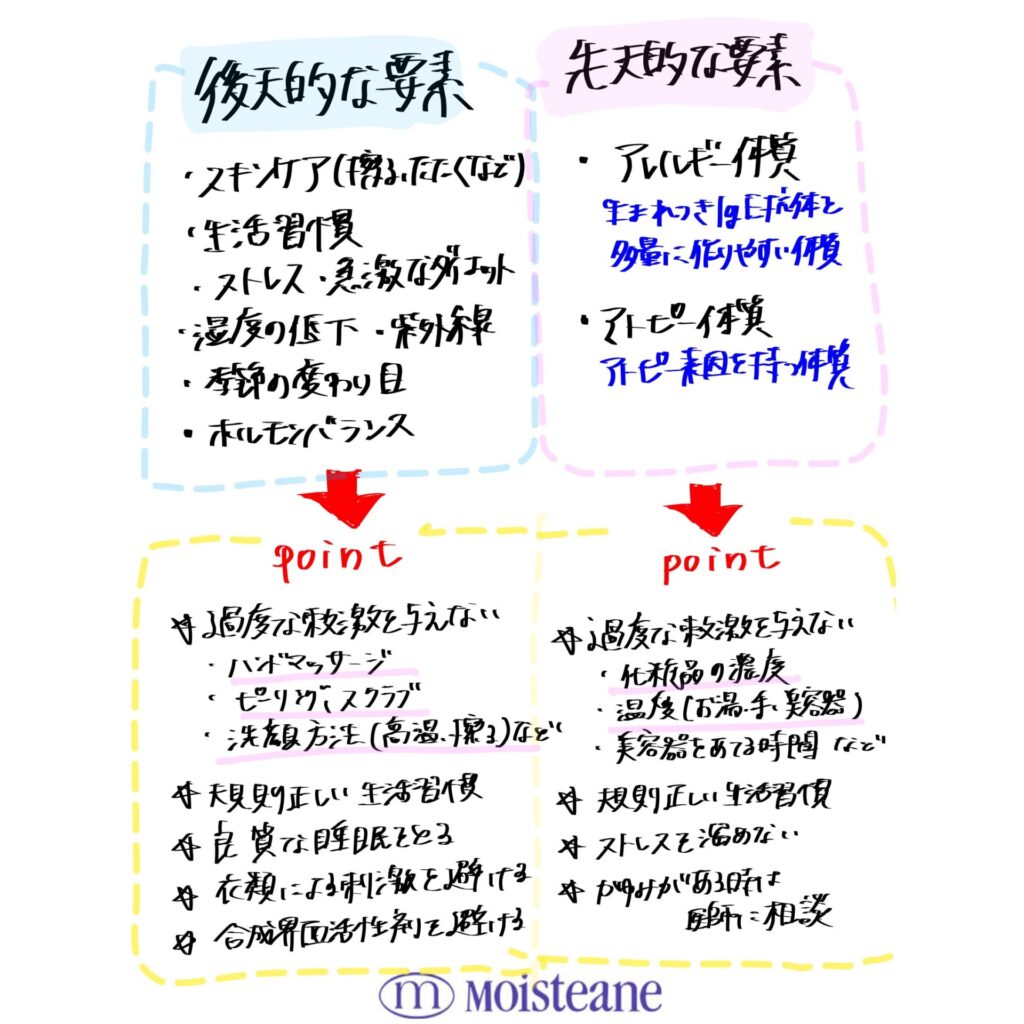 後天的な要素
・スキンケア(擦る、たたくなど)
・生活習慣
・ストレス・急激なダイエット
・湿度の低下 ・紫外線
・季節の変わり目
・ホルモンバランス
先天的な要素
・アレルギー体質
生まれつきIgE抗体を
多量に作りやすい体質
・アトピー体質
アトピー素因を持つ体質
point
＊過度な刺激を与えない
・ハンドマッサージ
・ピーリング、スクラブ
・洗顔方法(高温、擦る)など
＊規則正しい生活習慣
＊良質な睡眠をとる
＊衣類による刺激を避ける
＊合成界面活性剤を避ける
point
＊過度な刺激を与えない
・化粧品の濃度
・温度(お湯、手、美容器)
・美容器をあてる時間 など
＊規則正しい生活習慣
＊ストレスを溜めない
＊かゆみがある時は
医師に相談
m MOISTEANE